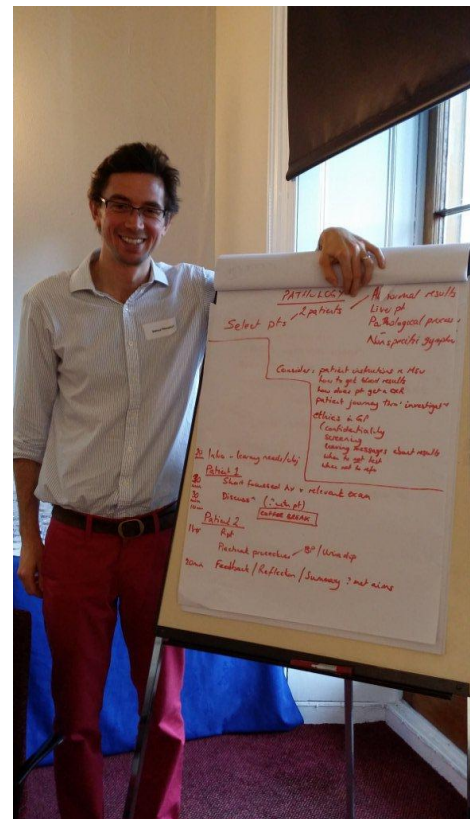 PATHOLOGY
Select pts 2 patients
Abnormal results
Live pt
Pathological process
Non specific
Consider. patient instructions re MSU
how to get blood results
how does pt get a CXR
patient journey thro' investigatn
ethics in GP
(confidentiality
screening
leaving messages about results
when to not test
when not to refer
30 Intro - learning needs/obj
Patient 1
30 min Short focussed Hx + relevant exam
30 min Discussn (? with pt)
COFFEE BREAK
Patient 2
1hr Rpt
Practical procedures BP / Urine dip
30min Feedback / Reflection / Summary ? met aims